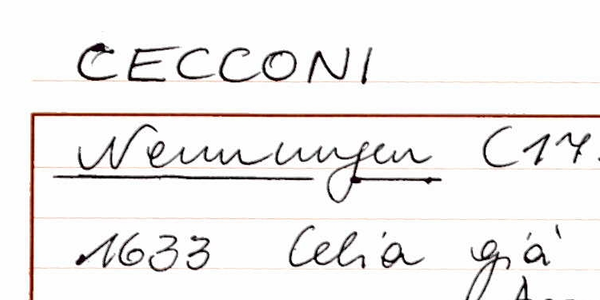 CECCONI
Nennungen (17.
1633 Celia già